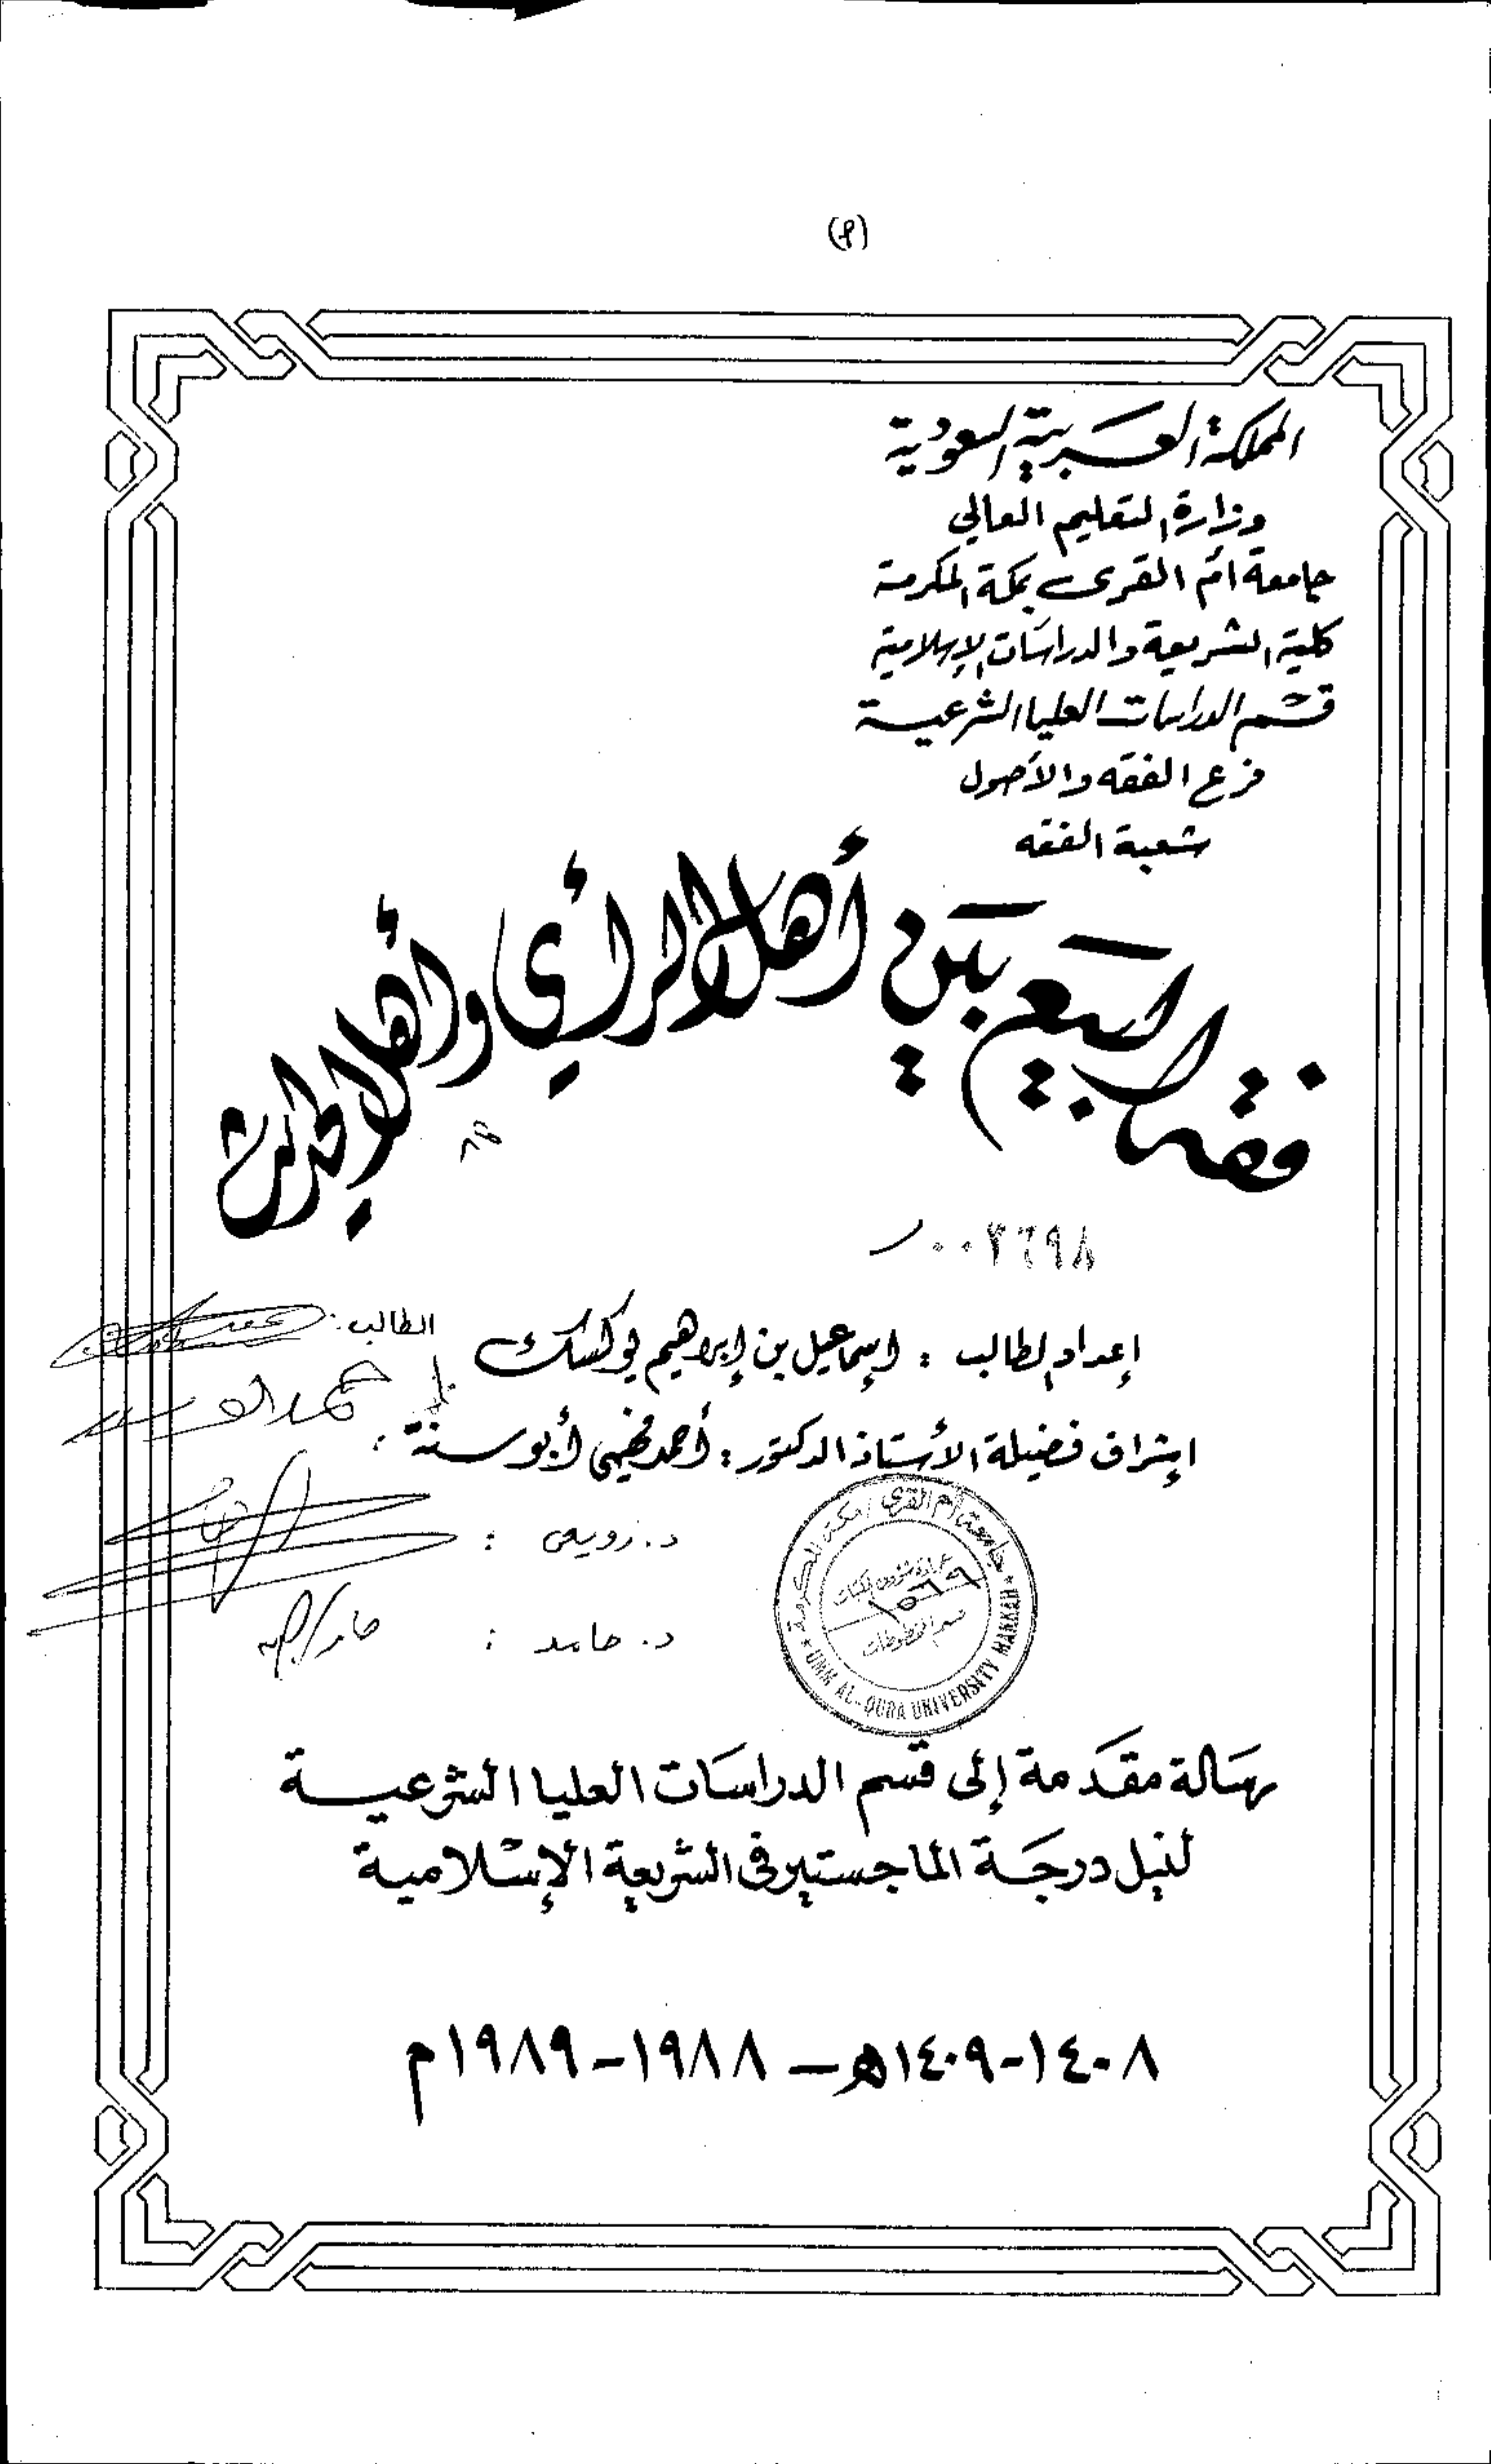 (٩)
المملكة العربية السعودية
وزارة التعليم العالي
جامعة أم القرى بمكة المكرمة
كلية الشريعة والدراسات الإسلامية
قسم الدراسات العليا الشرعية
فرع الفقه والأصول
شعبة الفقه
فقه البيع بين أهل الرأي وأهل الحديث
٠٠٢٦٩٨
إعداد الطالب : إسماعيل بن إبراهيم
الطالب :
إشراف فضيلة الأستاذ الدكتور : أحمد فهمي أبو سنة :
د. رويعي :
د. حامد :
جامعة أم القرى مكة المكرمة
UMM AL-QURA UNIVERSITY MAKKAH
قسم المخطوطات
رسالة مقدمة إلى قسم الدراسات العليا الشرعية
لنيل درجة الماجستير في الشريعة الإسلامية
١٤٠٨-١٤٠٩هـ – ١٩٨٨-١٩٨٩م